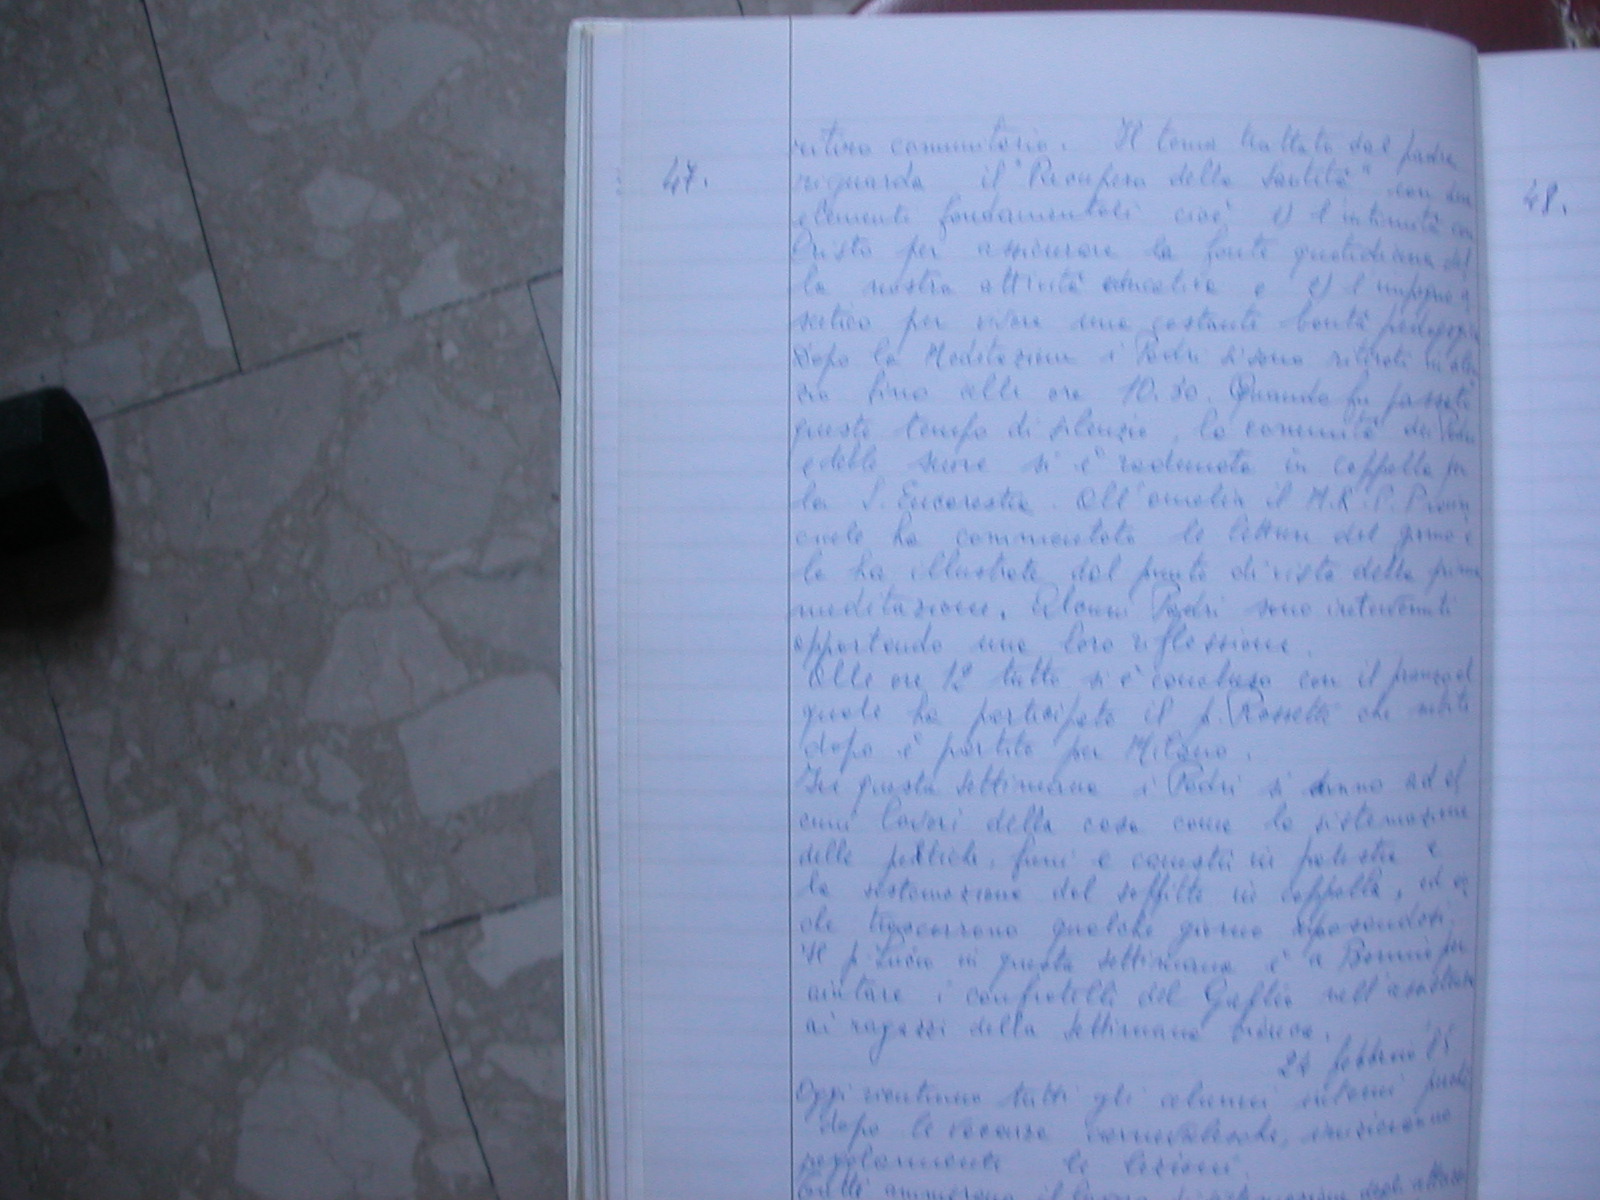 47.
ritiro comunitario. Il tema trattato dal padre
riguarda il "Recupero della Santità" con due
elementi fondamentali cioè 1) l'intimità con
Cristo per assicurare la fonte quotidiana del
la nostra attività educativa e 2) l'impegno a
scetico per vivere una costante bontà pedagogica
Dopo la Meditazione i Padri si sono ritirati in silen
zio fino alle ore 10.30. Quando fu passato
questo tempo di silenzio, la comunità dei Padri
e delle suore si è radunata in cappella per
la S. Eucarestia. All'omelia il M.R.P. Provin
ciale ha commentato le letture del giorno e
le ha illustrate dal punto di vista della prima
meditazione. Alcuni Padri sono intervenuti
apportando una loro riflessione.
Alle ore 12 tutto si è concluso con il pranzo al
quale ha partecipato il p. Rossetti che subito
dopo è partito per Milano.
In questa settimana i Padri si danno ad al
cuni lavori della casa come la sistemazione
delle in palestra e
la sistemazione del soffitto in cappella, ed an
che trascorrono qualche giorno riposandosi.
Il p. Lucio in questa settimana è a Bormio per
aiutare i confratelli del Gallio nell'assistenza
ai ragazzi della settimana bianca.
febbraio 85
Oggi rientrano tutti gli alunni interni poiché
dopo le vacanze carnevalesche, inizieranno
regolarmente le lezioni.
Tutti il lavoro di degli
48.